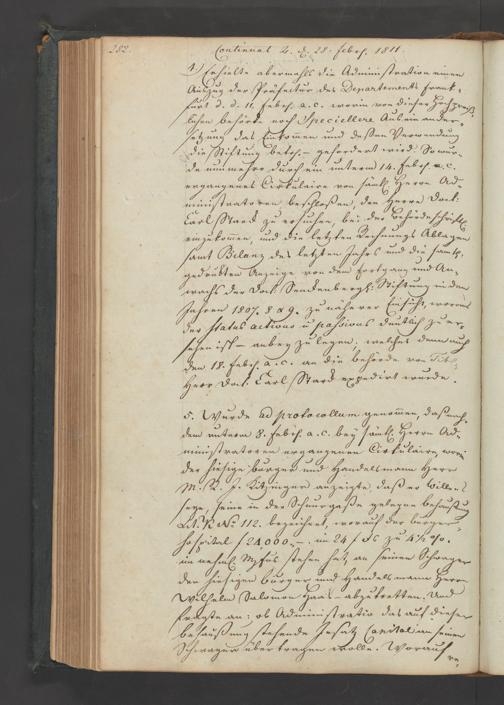 282.
Continuat. 4. d. 28. Febr. 1811.
1) Erhielte abermahls die Administration einen
Auszug der Präfectur des Departements Frank-
furt d. d. 11. Febr. a. c. worin von dieser
lichen behörde noch Speciellere Auseinander-
setzung das Einkommen und dessen Verwendung
die Stiftung betref.- gefordert wird. So wur-
de nunmehro durch ein unterm 14. Febr. a. c.
ergangenes Cirkulaire von sämtl. Herrn Ad-
ministratoren beschloßen, den Herrn Doct.
Carl Stard zu ersuchen, bei der behörde schriftl.
einzukommen, und die letzten Rechnungs Ablagen
samt Bilanz des letzten Jahrs und die sämtl.
gedrukten Anzeige von dem Fortgang und An-
wachs der Doct. Senckenbergl. Stiftung in den
Jahren 1807. 8 & 9. zu näherer Einsicht, woraus
der status activus u passivus deutlich zu er-
sehen ist - anbey zu legen; welches denn auch
den 18. Febr. a. c. an die behörde von
Herr Doct. Carl Stard expedirt wurde.
5. Wurde ad protocollum genommen, daß nach
dem unterm 8. Febr. a. c. bey sämtl. Herrn Ad-
ministratoren ergangenen Cirkulaire, worin
der hiesige burger und Handelsmann Herr
M. K. J. Kitzinger anzeigte, daß er willens
seye, seine in der Schnurgaße gelegene behaußung
Lit. K No. 112. bezeichnet, worauf der burger-
hospital f 24000,- im 24 f Fs zu 4 % o/o.
in stehen hat, an seinen Schwager
den hiesigen burger und Handelsmann Herrn
Wilhelm Salomon Haas - abzutretten. Und
fragte an: ob Administratio das auf dieser
behaußung stehende Insatz Capital an seinen
Schwager übertragen wolle. Worauf